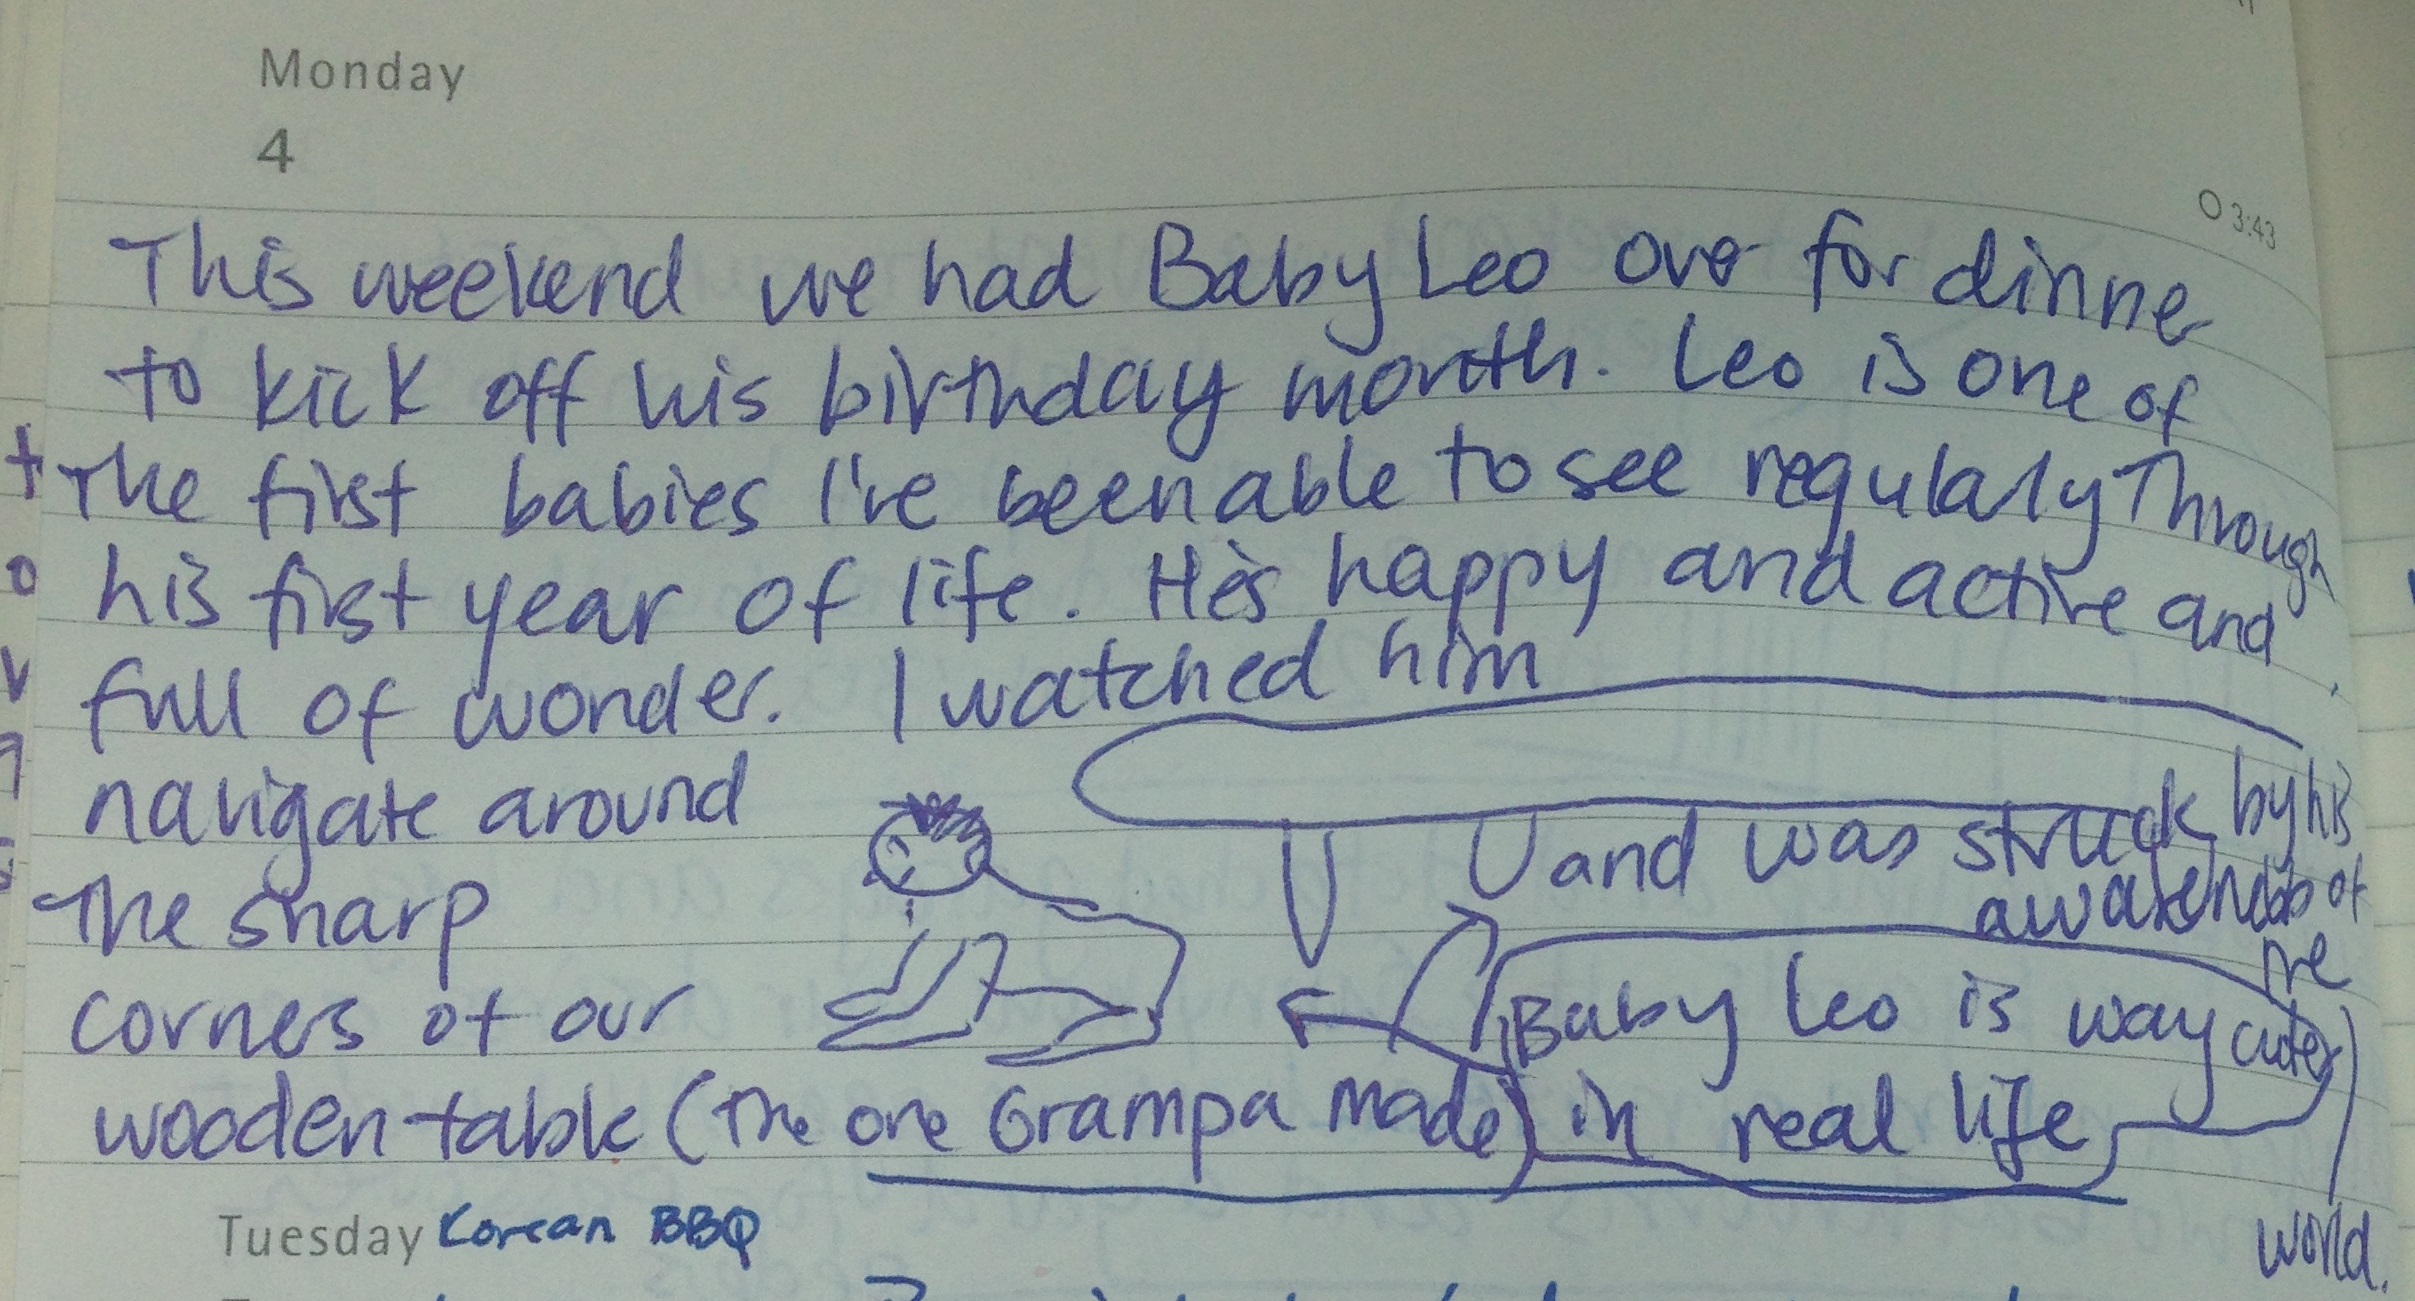 Monday
4
3:43
This weekend we had Baby Leo over for dinner
to kick off his birthday month. Leo is one of
the first babies I've been able to see regularly through
his first year of life. He's happy and active and
full of wonder. I watched him
navigate around
the sharp
corners of our
wooden table (the one Grampa made)
and was struck by his
awareness of
the
world.
Baby Leo is way cuter
in real life
Tuesday Korean BBQ